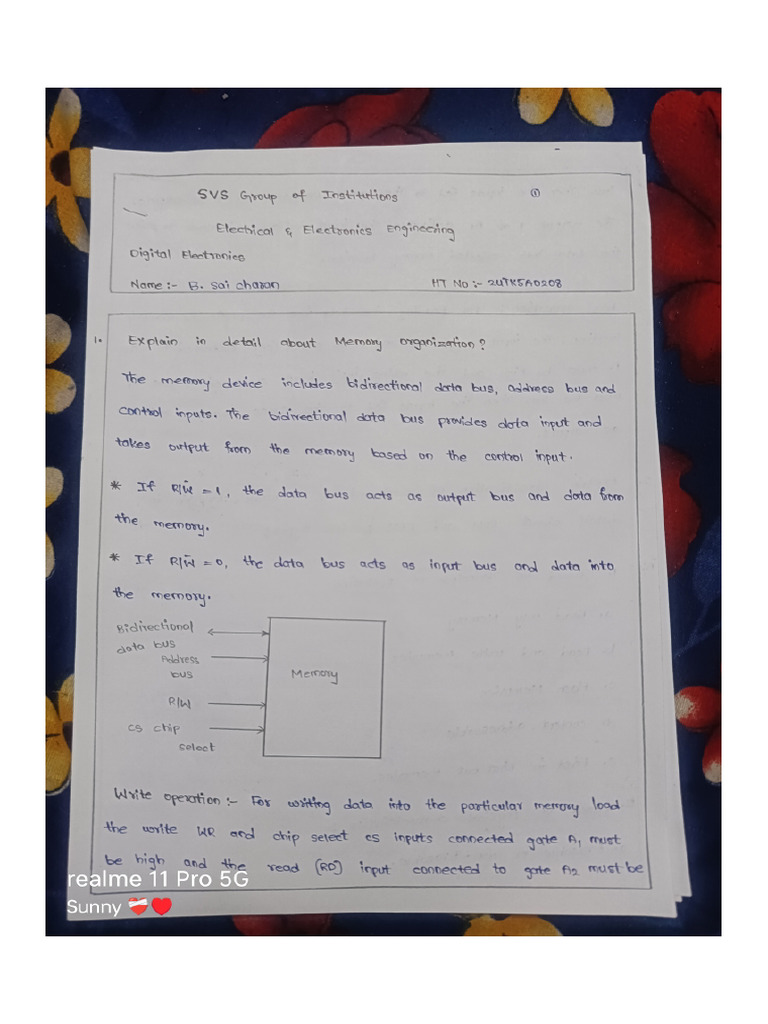 SVS Group of Institutions
①
Electrical & Electronics Engineering
Digital Electronics
Name :- B. Sai charan
HT No :- 24TK5A0208
1. Explain in detail about Memory organization?
The memory device includes bidirectional data bus, address bus and
control inputs. The bidirectional data bus provides data input and
takes output from the memory based on the control input.
* If R/W̄ = 1, the data bus acts as output bus and data from
the memory.
* If R/W̄ = 0, the data bus acts as input bus and data into
the memory.
Bidirectional
data bus
Address
bus
Memory
R/W
cs chip
select
Write operation :- For writing data into the particular memory load
the write WR and chip select cs inputs connected gate A1 must
be high and the read (RD) input connected to gate A2 must be
realme 11 Pro 5G
Sunny ❤️‍🩹❤️